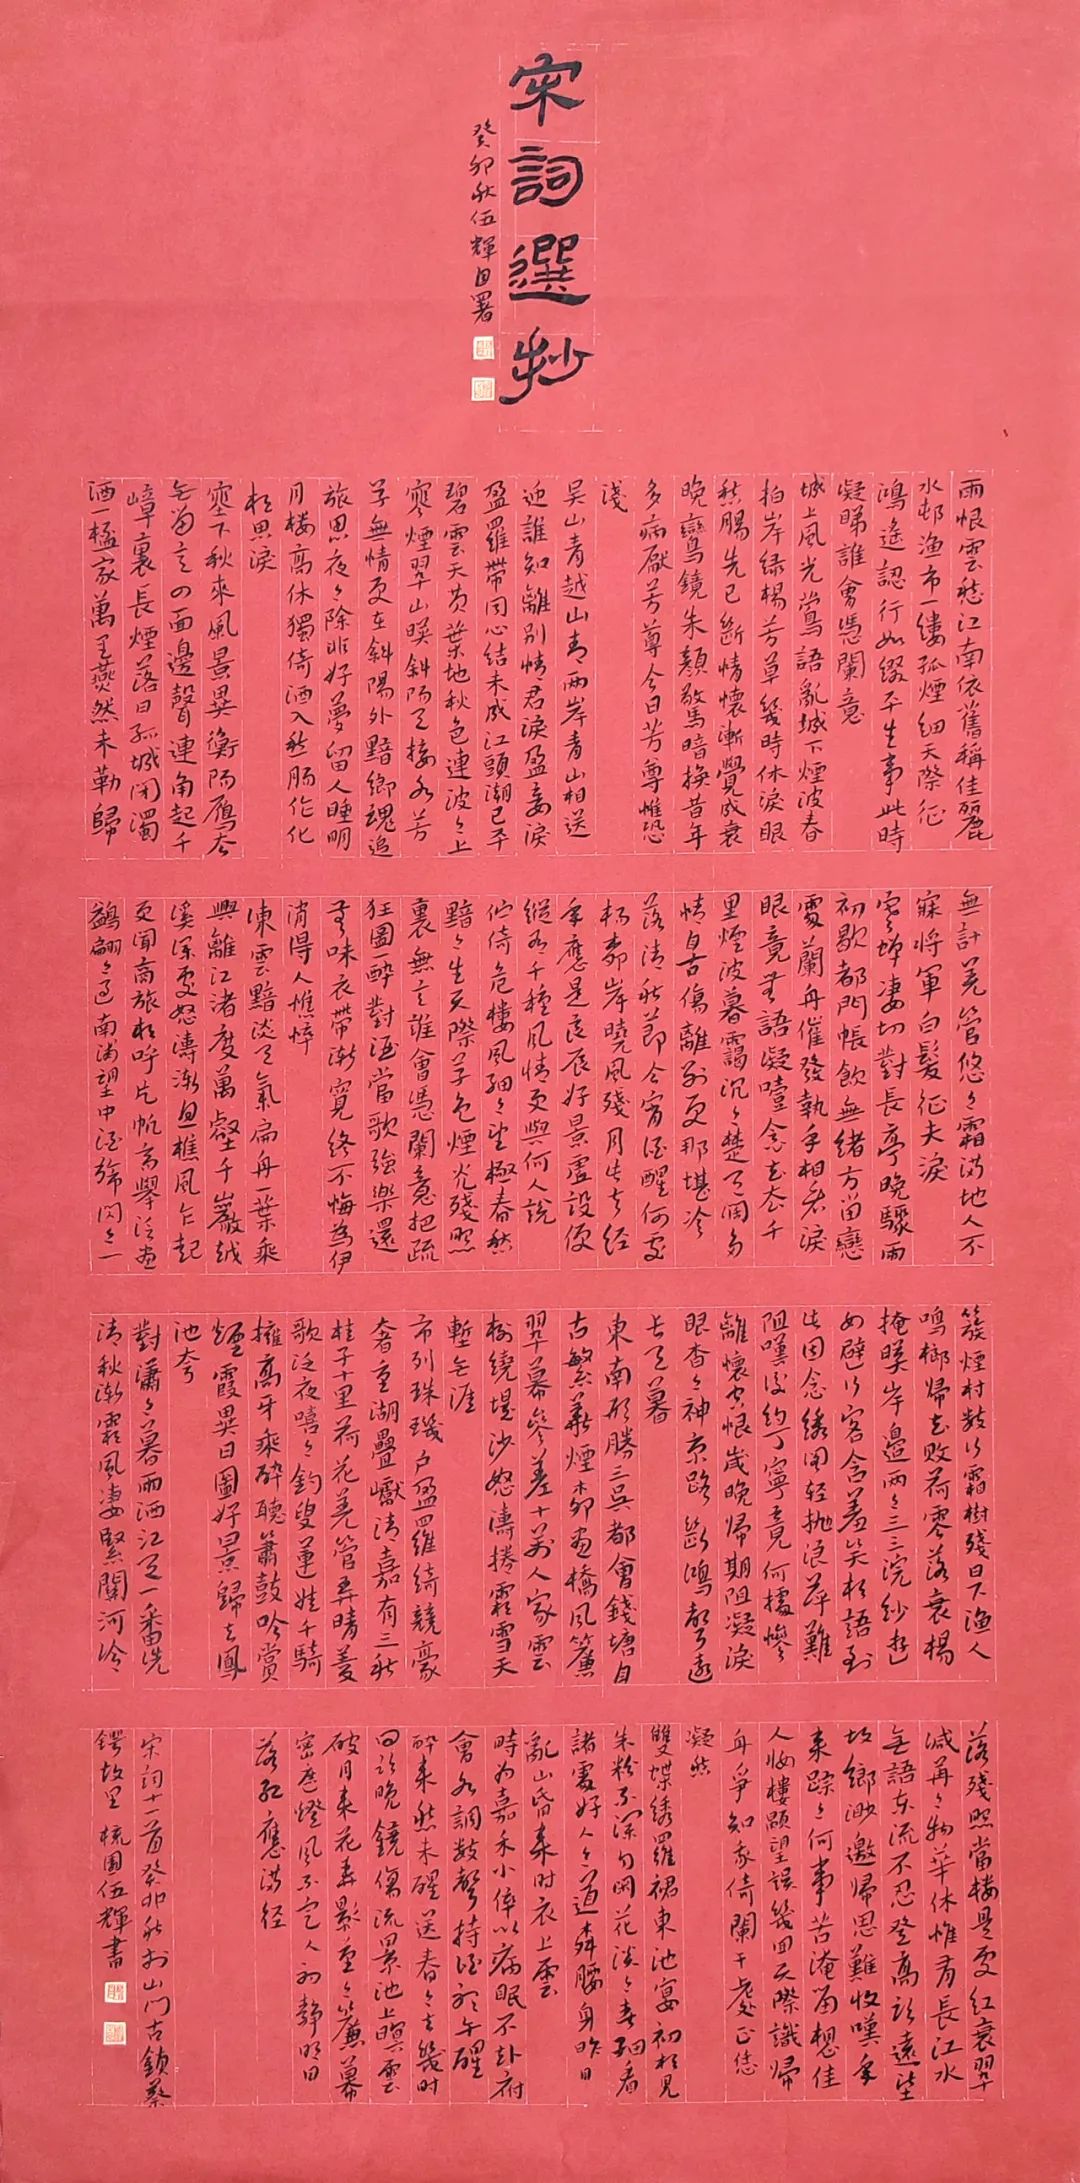 宋詞選抄
癸卯秋伍輝自署
雨恨雲愁江南依舊稱佳麗
水邨漁市一縷孤煙細天際征
鴻遙認行如綴平生事此時
凝睇誰會憑闌意
城上風光鶯語亂城下煙波春
拍岸綠楊芳草幾時休淚眼
愁腸先已斷情懷漸覺成衰
晚鸞鏡朱顏驚暗換昔年
多病厭芳尊今日芳尊惟恐
淺
吳山青越山青兩岸青山相送
迎誰知離別情君淚盈妾淚
盈羅帶同心結未成江頭潮已平
碧雲天黄葉地秋色連波々上
寒煙翠山映斜陽天接水芳
草無情更在斜陽外黯鄉魂追
旅思夜々除非好夢留人睡明
月樓高休獨倚酒入愁腸作化
相思淚
塞下秋來風景異衡陽雁去
無留意四面邊聲連角起千
嶂裏長煙落日孤城閉濁
酒一桮家萬里燕然未勒歸
無計羌管悠々霜滿地人不
寐將軍白髮征夫淚
寒蟬凄切對長亭晚驟雨
初歇都門帳飲無緒方留戀
處蘭舟催發執手相看淚
眼竟無語凝噎念去去千
里煙波暮靄沉々楚天闊多
情自古傷離別更那堪冷
落清秋節今宵酒醒何處
楊柳岸曉風殘月此去經
年應是良辰好景虛設便
縱有千種風情更與何人說
佇倚危樓風細々望極春愁
黯々生天際草色煙光殘照
裏無言誰會憑闌意把疏
狂圖一醉對酒當歌強樂還
無味衣帶漸寬終不悔為伊
消得人憔悴
凍雲黯淡天氣扁舟一葉乘
興離江渚度萬壑千巖越
溪深處怒濤漸息樵風乍起
更聞商旅相呼片帆高舉泛畫
鷁翩々過南浦望中酒旆閃々一
簇煙村數行霜樹殘日下漁人
鳴榔歸去敗荷零落衰楊
掩映岸邊兩々三三浣紗遊
女避行客含羞笑相語到
此因念綉閣輕拋浪萍難
阻嘆後約丁寧竟何據慘
離懷空恨歲晚歸期阻凝淚
眼杳々神京路斷鴻聲遠
長天暮
東南形勝三吳都會錢塘自
古繁華煙柳畫橋風簾
翠幕參差十萬人家雲
樹繞堤沙怒濤捲霜雪天
塹無涯
市列珠璣户盈羅綺競豪
奢重湖疊巘清嘉有三秋
桂子十里荷花羌管弄晴菱
歌泛夜嘻々釣叟蓮娃千騎
擁高牙乘醉聽簫鼓吟賞
煙霞異日圖好景歸去鳳
池夸
對瀟々暮雨洒江天一番洗
清秋漸霜風凄緊關河冷
落殘照當樓是處紅衰翠
減苒々物華休惟有長江水
無語東流不忍登高臨遠望
故鄉渺邈歸思難收嘆年
來蹤々何事苦淹留想佳
人妝樓顒望誤幾回天際識歸
舟爭知我倚闌干處正恁
凝愁
雙蝶綉羅裙東池宴初相見
朱粉不深勻閑花淡々春細看
諸處好人々道柳腰身昨日
亂山昏來時衣上雲
時為嘉禾小倅以病眠不赴府
會水調數聲持酒聽午醒
醉來愁未醒送春々去幾時
回臨晚鏡傷流景池上暝雲
破月來花弄影重々簾幕
密遮燈風不定人初靜明日
落紅應滿徑
宋詞十一首癸卯秋於山門古鎮蔡
鍔故里梳園伍輝書